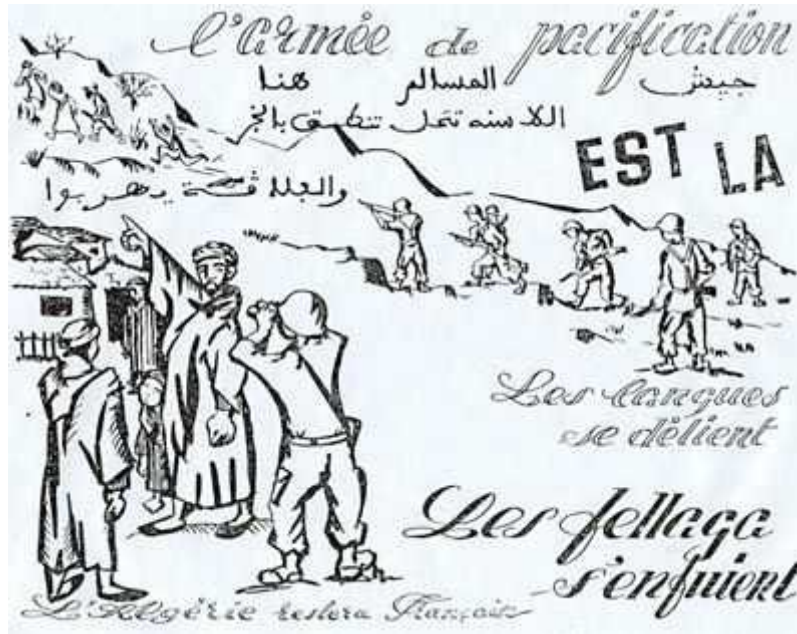 l'armée de pacification
جيش المسالم هنا
اللاسنه تتحل تنطيق بالخبر
EST LA
والفلاقة يهربوا
Les langues
se délient
Les fellaga
s'enfuient
L'Algérie restera